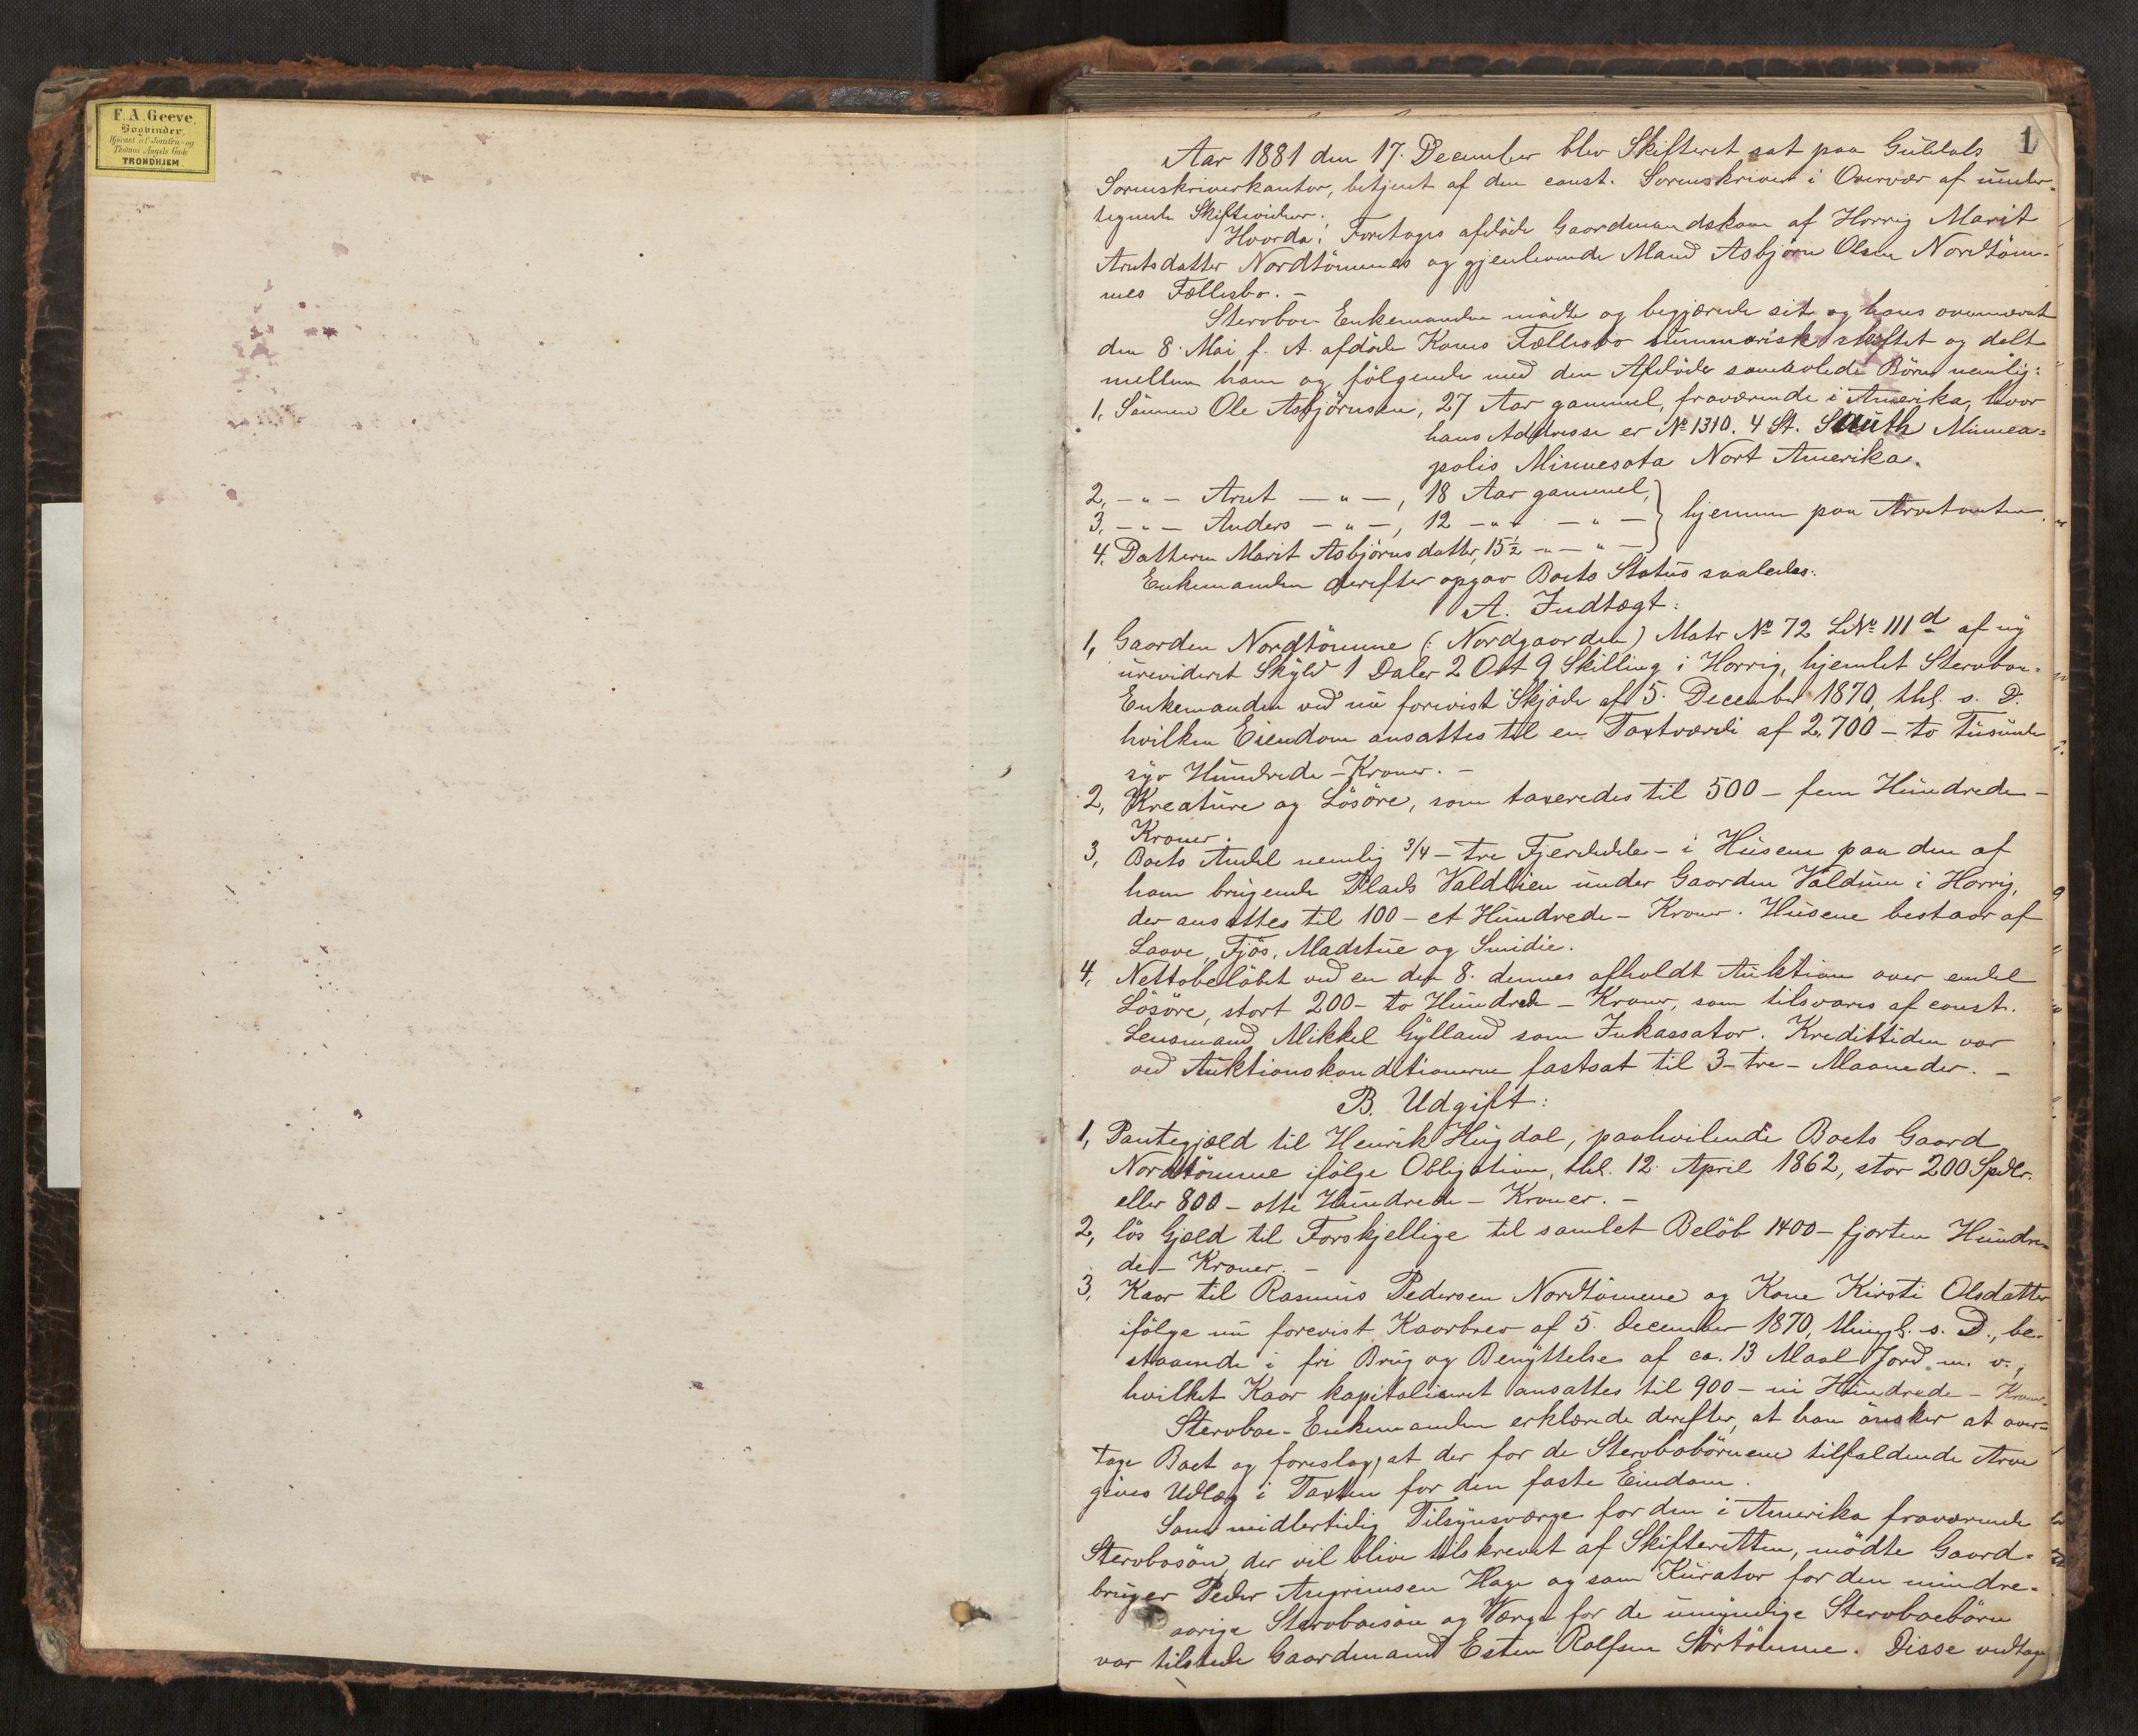 F. A. Geeve.
Bogbinder.
Hjørnet af Jomfru- og
Thomas Angels Gade
TRONDHJEM.
1
Aar 1881 den 17. December blev Skifteret sat paa Guldals
Sorenskriverkontor, betjent af den const. Sorenskriver i Overvær af under-
tegnede Skiftevidner.
Hvorda: Foretoges afdöde Gaardmandskone af Horrig Marit
Arntsdatter Nordtömmes og gjenlevende Mand Asbjörn Olsen Nordtöm-
mes Fællesbo. -
Stervboe Enkemanden mödte og begjærede sit og hans ovennævnt
den 8. Mai f. A. afdöde Kones Fællesbo summarisk skiftet og delt
mellem ham og fölgende med den Afdöde sammavlede Börn nemlig:
1, Sönnen Ole Asbjörnsen, 27 Aar gammel, fraværende i Amerika, hvor
hans Addresse er No 1310. 4 St. South Minnea=
polis Minnesota Nort Amerika.
2, -"- Arnt -"-, 18 Aar gammel,
3, -"- Anders -"-, 12 -"- -"- } hjemme paa Arvetomten.
4. Datteren Marit Asbjörnsdatter, 15½ -"- -"-
Enkemanden derefter opgav Boets Status saaledes:
A. Indtægt:
1, Gaarden Nordtömme (: Nordgaarden) Matr No 72 LNo 111d af ny
urevideret Skyld 1 Daler 2 Ort 9 Skilling i Horrig, hjemlet Stervboe-
Enkemanden ved nu forevist Skjöde af 5. December 1870, thl. s. D.
hvilken Eiendom ansattes til en Taxtværdi af 2,700 - to Tusinde
syv Hundrede - Kroner. -
2, Kreature og Lösöre, som taxeredes til 500 - fem Hundrede -
Kroner.
3, Boets Andel nemlig 3/4 - tre Fjerdedele - i Husene paa den af
ham brugende Plads Valdlien under Gaarden Valdum i Horrig,
der ansattes til 100 - et Hundrede - Kroner. Husene bestaar af
Laave, Fjös, Madstue og Smidie.
4, Nettobelöbet ved en den 8. dennes afholdt Auktion over endel
Lösöre, stort 200 - to Hundrede - Kroner, som tilsvares af const.
Lensmand Mikkel Gylland som Inkassator. Kredittiden var
ved Auktionskonditionerne fastsat til 3 - tre - Maaneder. -
B. Udgift:
1, Pantegjæld til Henrik Hugdal, paahvilende Boets Gaard
Nordtömme ifölge Obligation, thl. 12. April 1862, stor 200 Spdlr.
eller 800 - otte Hundrede - Kroner. -
2, lös Gjæld til Forskjellige til samlet Belöb 1400 - fjorten Hundre-
de - Kroner. -
3, Kaar til Rasmus Pedersen Nordtömme og Kone Kirsti Olsdatter
ifölge nu forevist Kaarbrev af 5. December 1870, thingl. s. D., be-
staaende i fri Brug og Benyttelse af ca. 13 Maal Jord m. v.,
hvilket Kaar kapitaliseret ansattes til 900 - ni Hundrede - Kroner.
Stervboe-Enkemanden erklærede derefter, at han önsker at over=
tage Boet og foreslog, at der for de Stervbobörnene tilfaldende Arve
gives Udlæg i Taxten for den faste Eiendom.
Som midlertidig Tilsynsværge for den i Amerika fraværende
Stervbosön, der vil blive tilskrevet af Skifteretten, mödte Gaard-
bruger Peder Angrimsen Hage og som Kurator for den mindre-
aarige Stervboesön og Værge for de umyndige Stervboebörn
var tilstede Gaardmand Esten Rolfsen Sörtömme. Disse vedtage